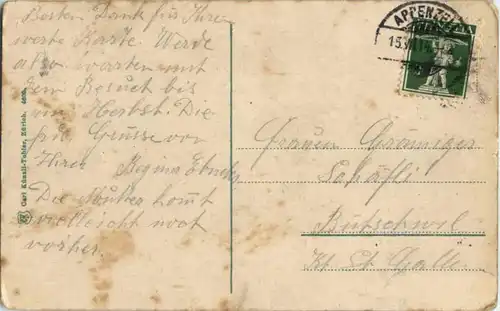 Besten Dank für Ihre
werte Karte. Werde
also warten mit
dem Besuch bis
im Herbst. Die
Grüsse von
Ihrer Regina Ebneter
Die Mutter komt
vielleicht noch
vorher.
Carl Künzli-Tobler, Zürich.
APPENZELL
Frauen
Schäfli
Bütschwil
Kt. St. Galle